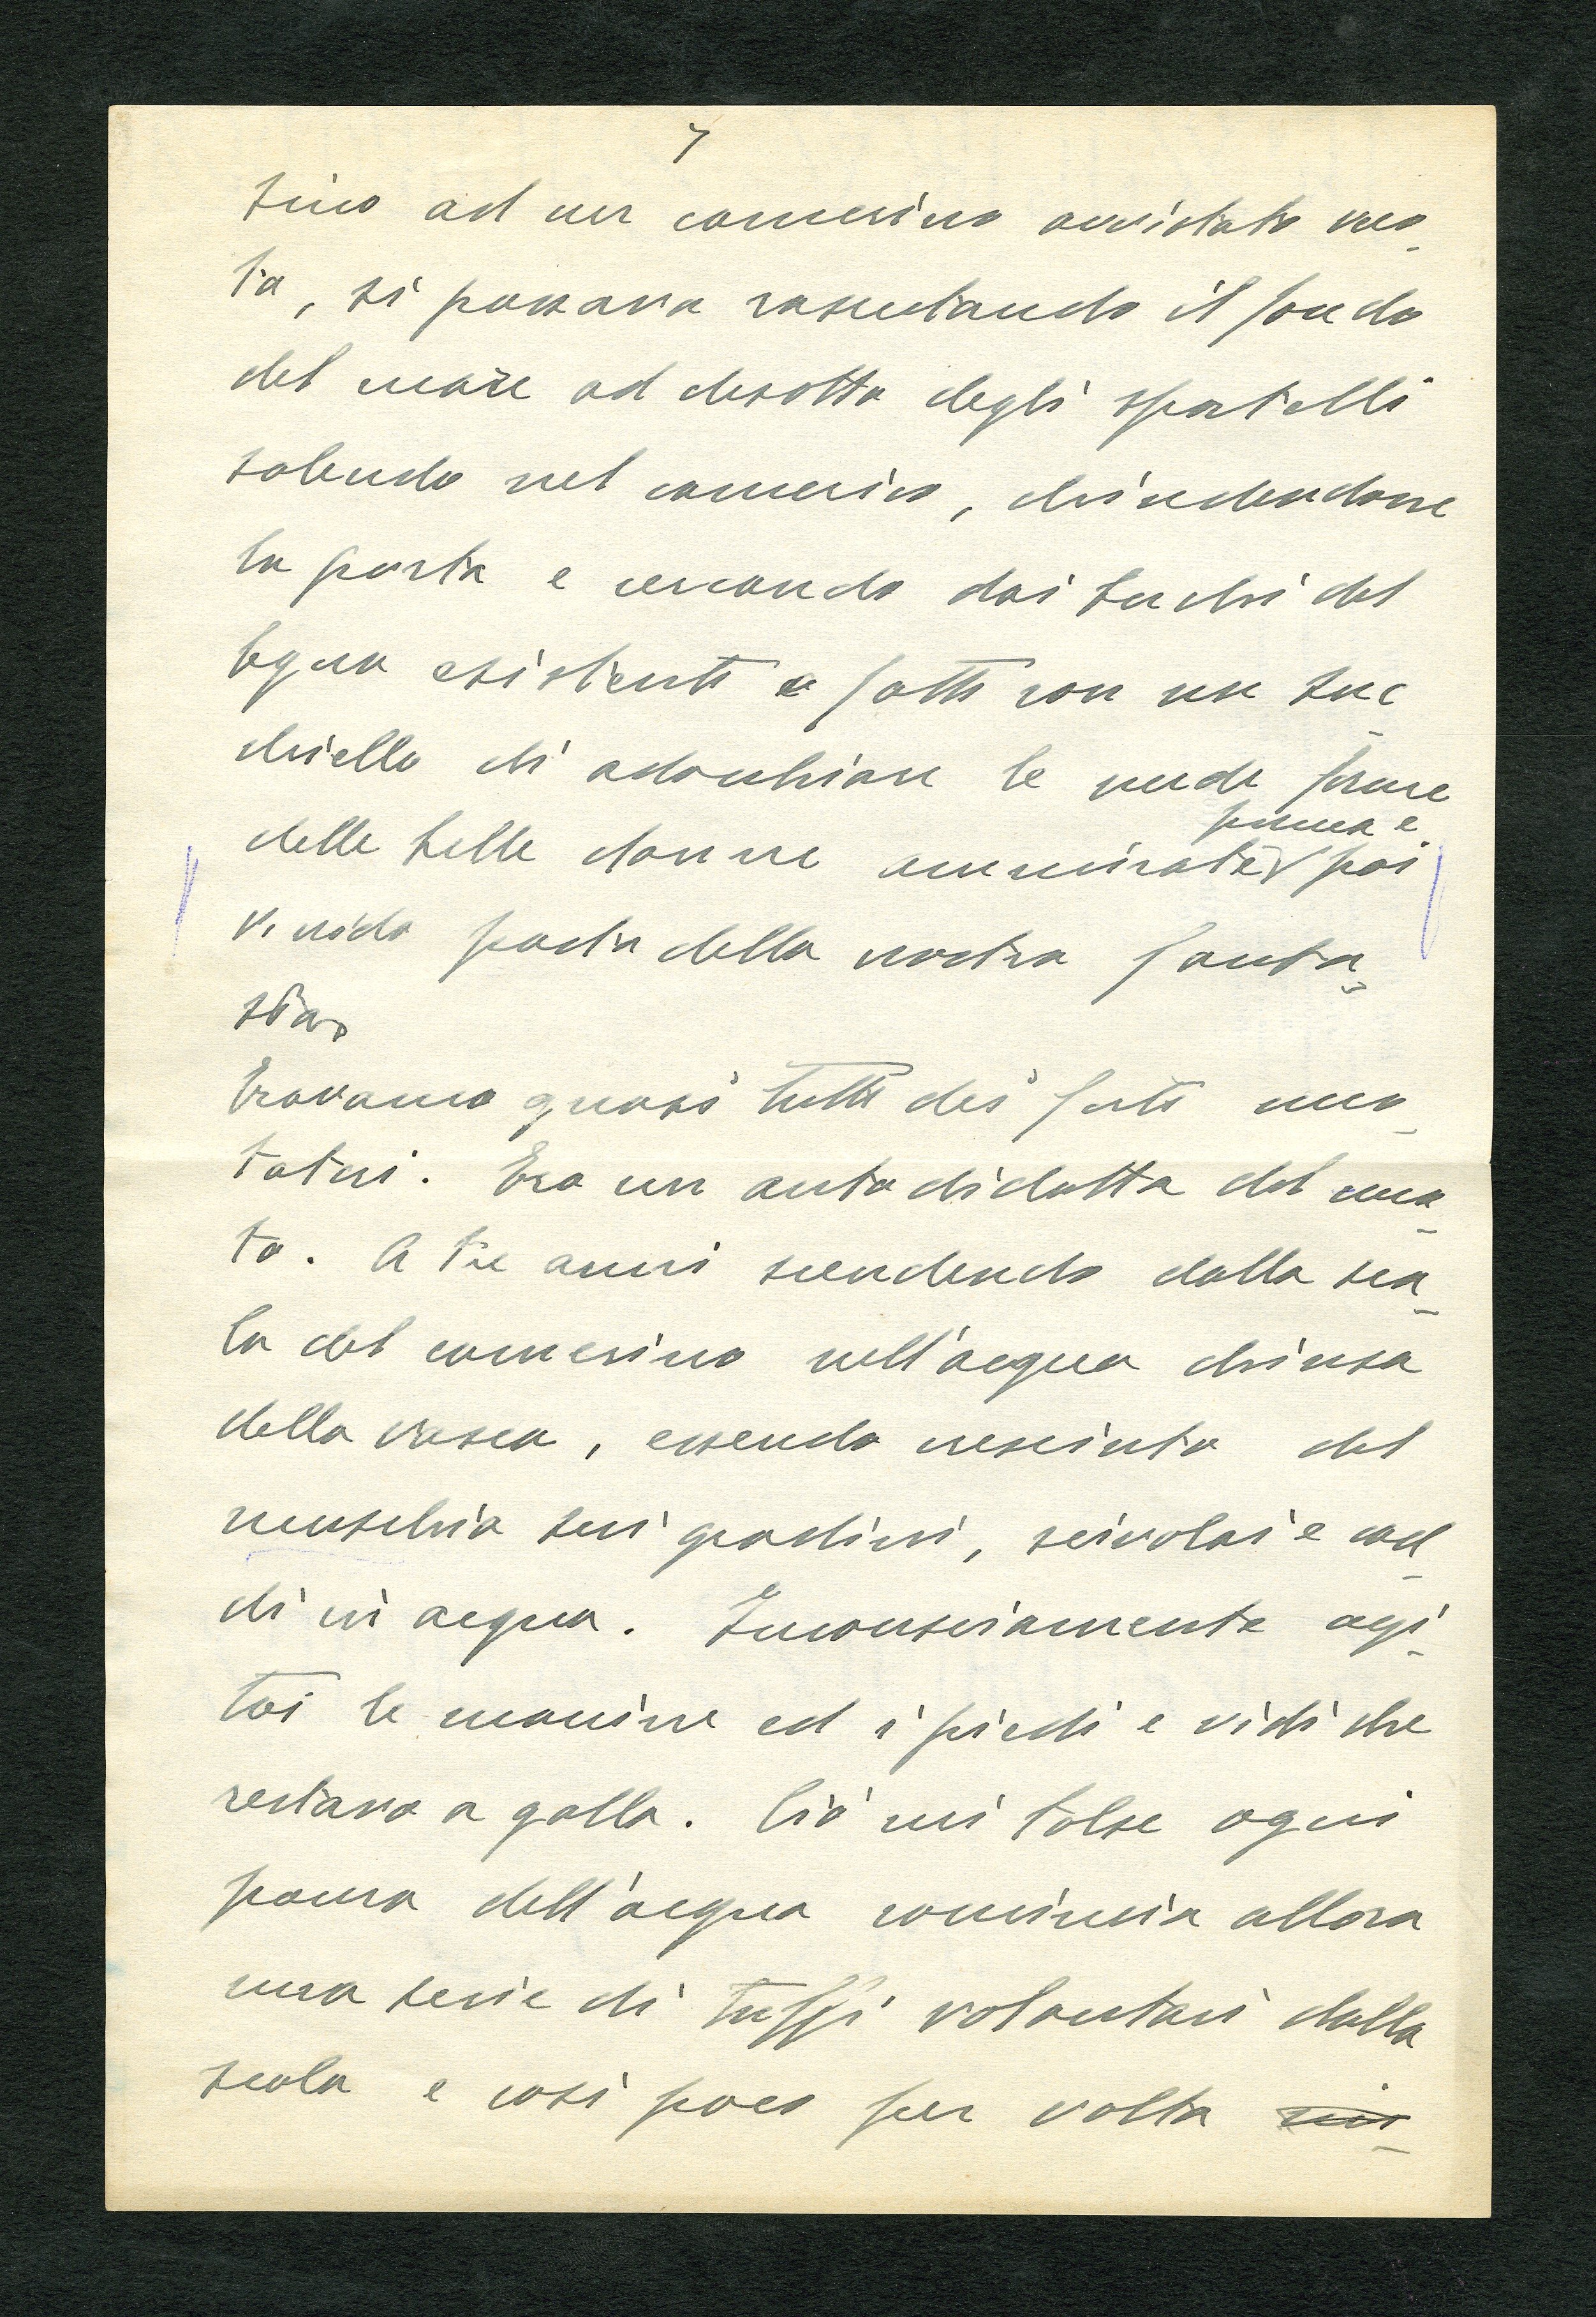 7
sino ad un camerino avvistato vuo-
to, si passava rasentando il fondo
del mare al disotto degli sportelli
salendo nel camerino, chiudendone
la porta e cercando dai buchi del
legno esistenti o fatti con un suc-
chiello di adocchiare le nude forme
delle belle donne ammirate prima e poi
vivido pasto della nostra fanta-
sia.
Eravamo quasi tutti dei forti nuo-
tatori. Ero un autodidatta del nuo-
to. A tre anni scendendo dalla sca-
la del camerino nell'acqua chiusa
della vasca, essendo cresciuto del
muschio sui gradini, scivolai e cad-
di in acqua. Inconsciamente agi-
tai le manine ed i piedi e vidi che
restavo a galla. Ciò mi tolse ogni
paura dell'acqua cominciai allora
una serie di tuffi volontari dalla
scala e così poco per volta